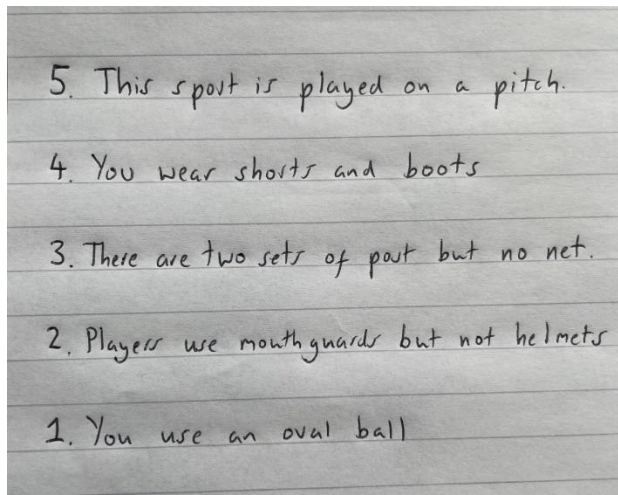 5. This sport is played on a pitch.
4. You wear shorts and boots
3. There are two sets of post but no net.
2. Players use mouthguards but not helmets
1. You use an oval ball